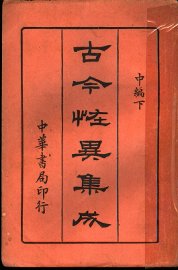 中編下
古今怪異集成
中華書局印行